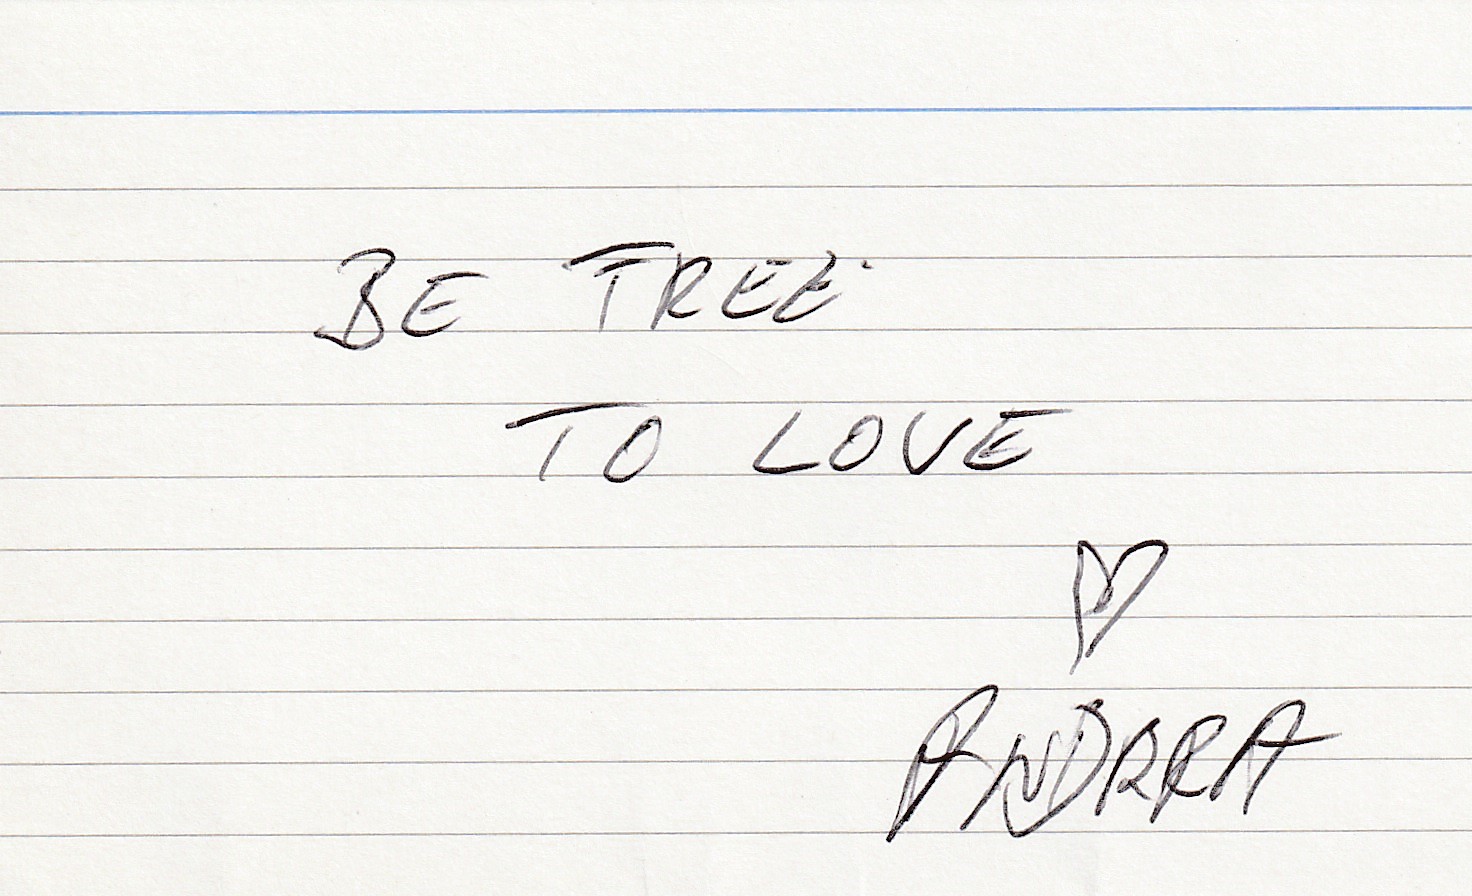 BE FREE
TO LOVE
♡
ANDRRA